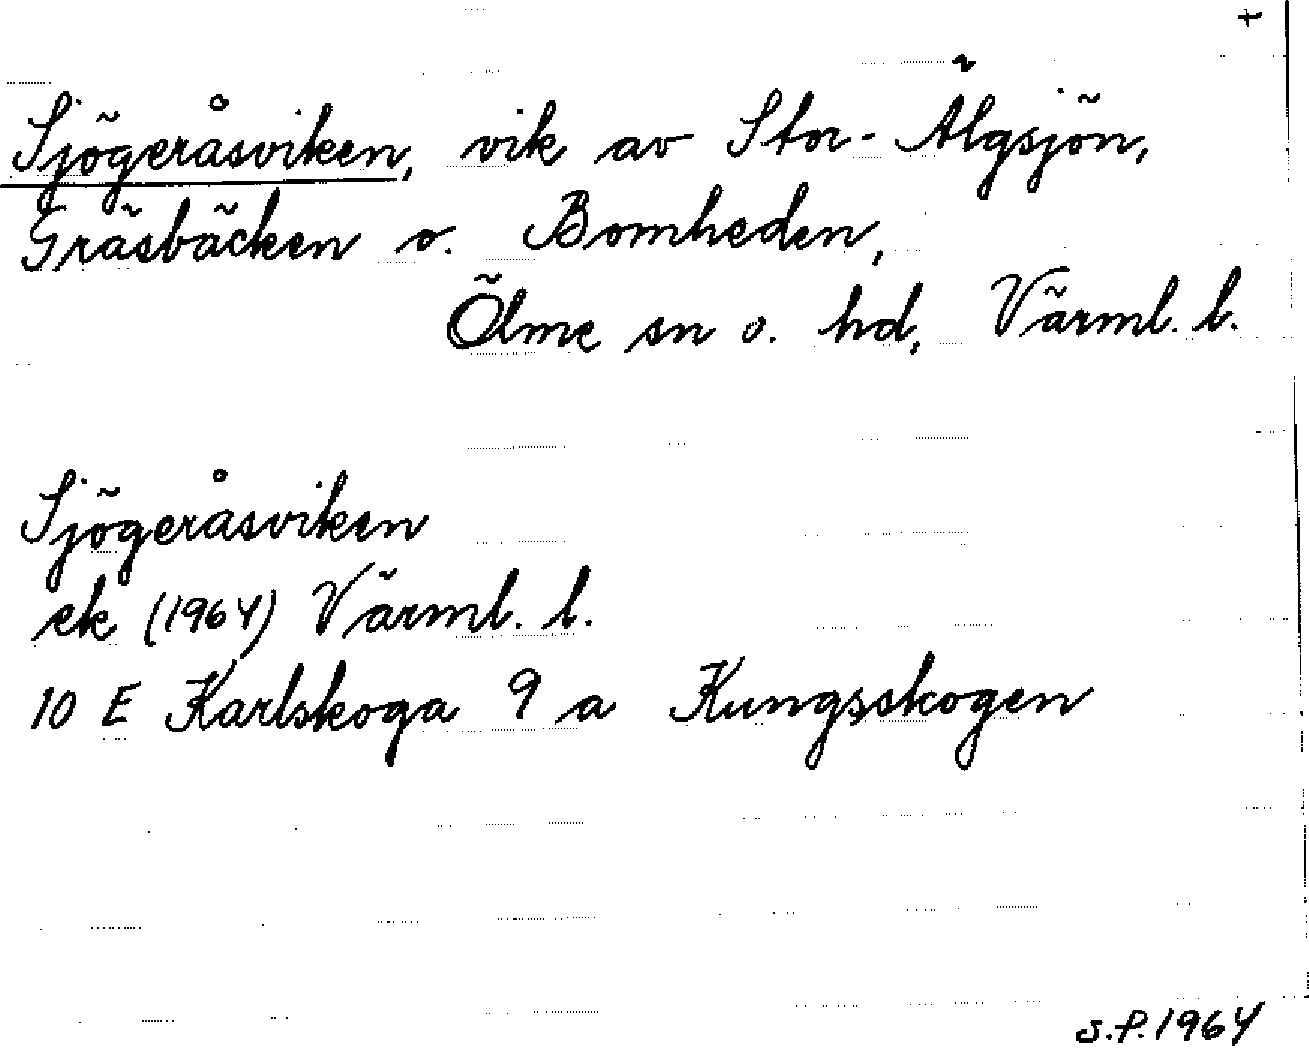 +
Sjögeråsviken, vik av Stor-Älgsjön,
Gräsbäcken o. Bomheden,
Ölme sn o. hd, Värml. l.
Sjögeråsviken
ek (1964) Värml. l.
10 E Karlskoga 9 a Kungsskogen
S.P. 1964